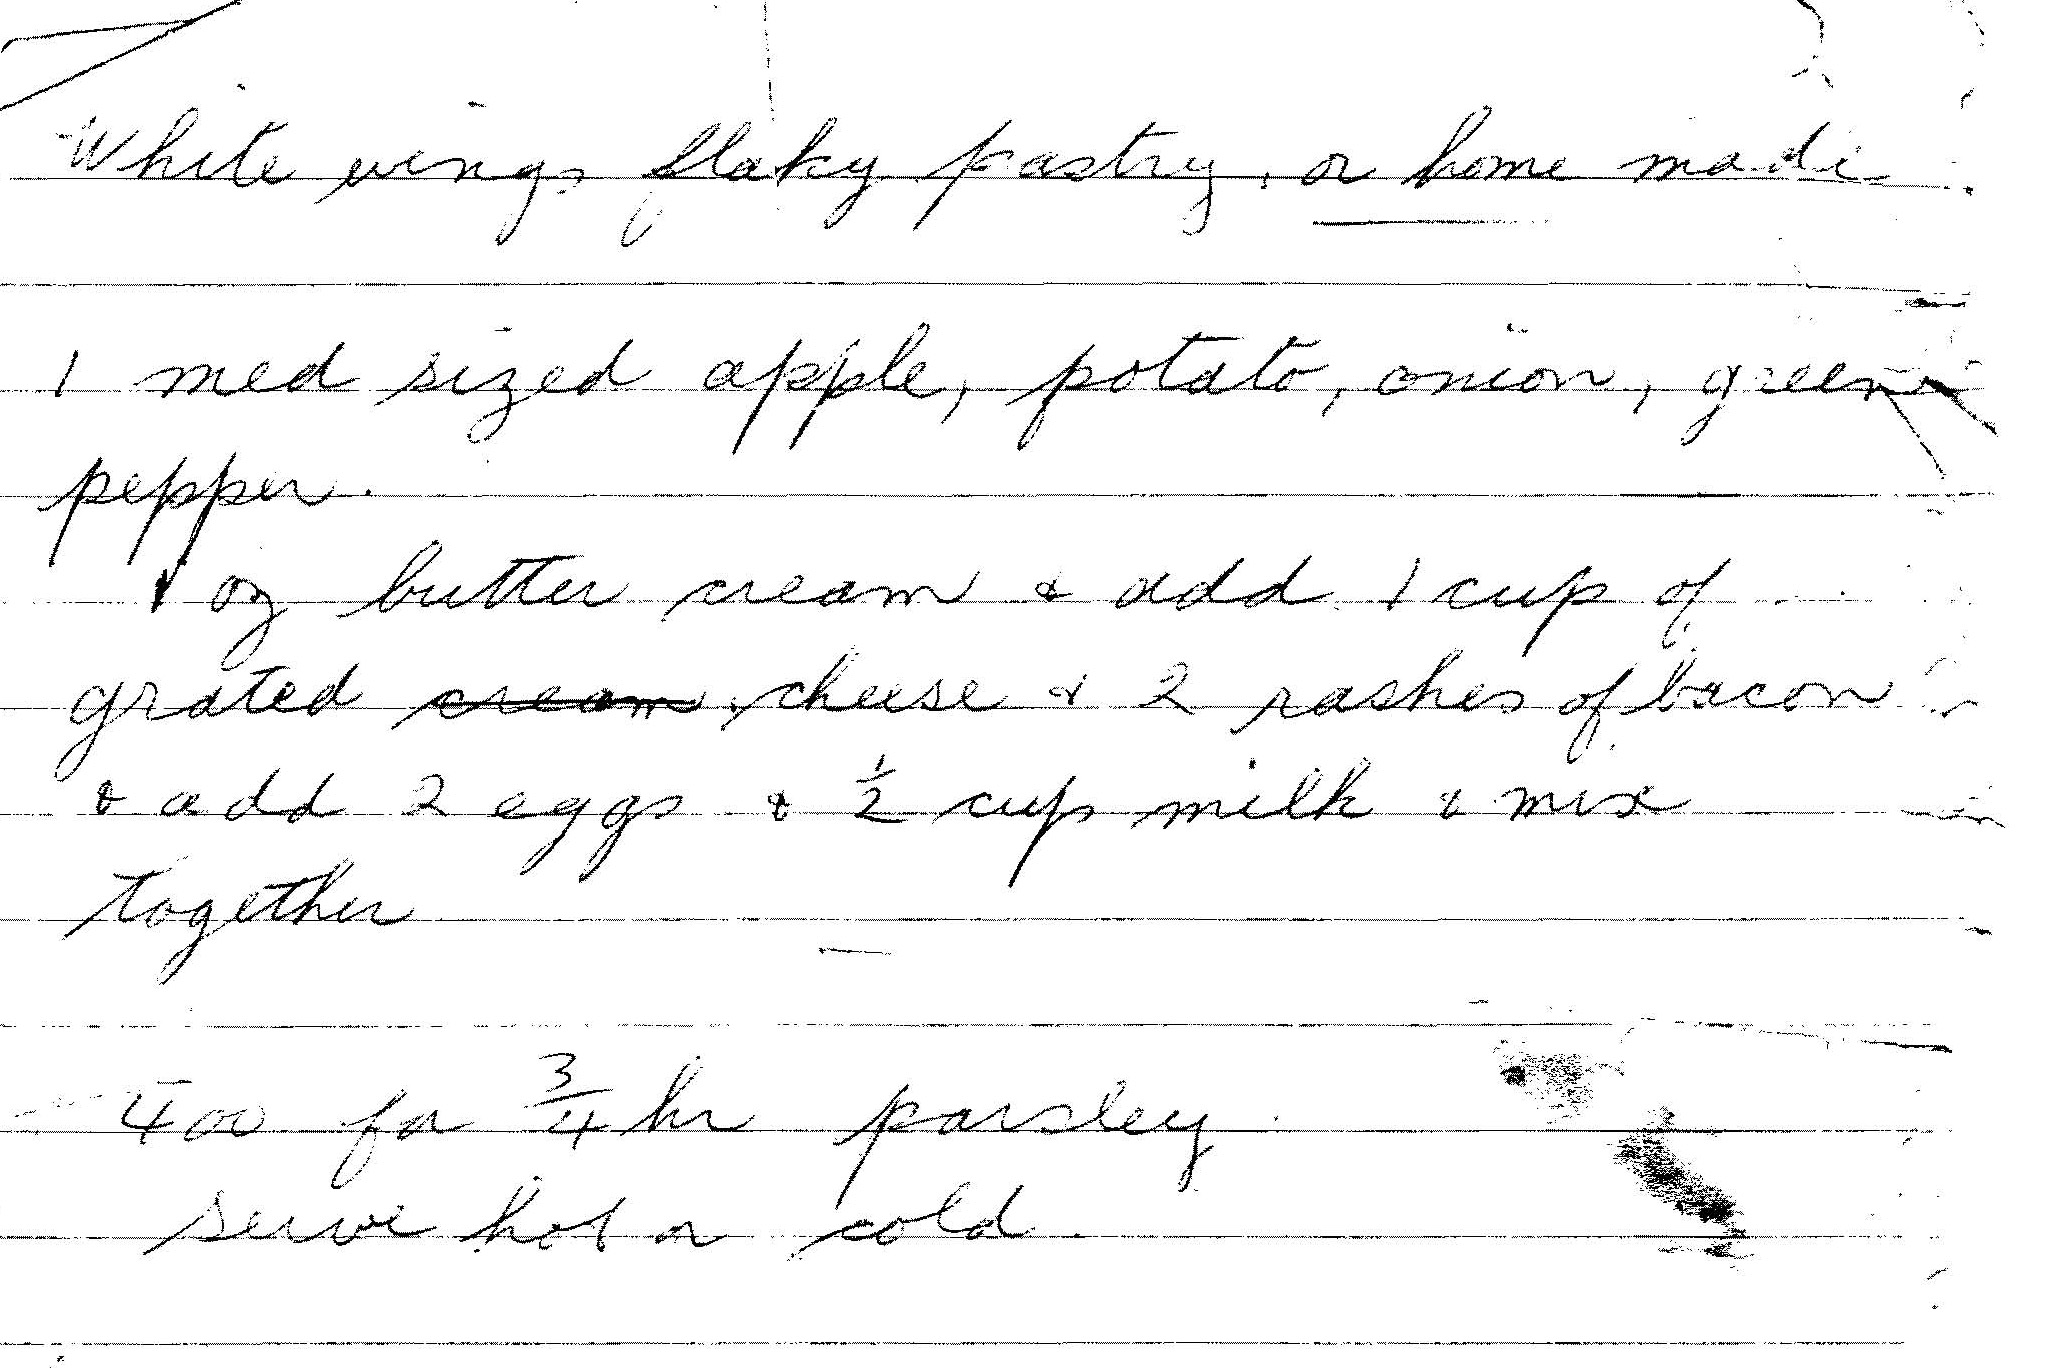 White wings flaky pastry, or home made
1 med sized apple, potato, onion, green
pepper.
1 oz butter cream & add 1 cup of
grated ~~cream~~ cheese & 2 rashes of bacon
& add 2 eggs & ½ cup milk & mix
together
400 for ¾ hr parsley
serve hot or cold.